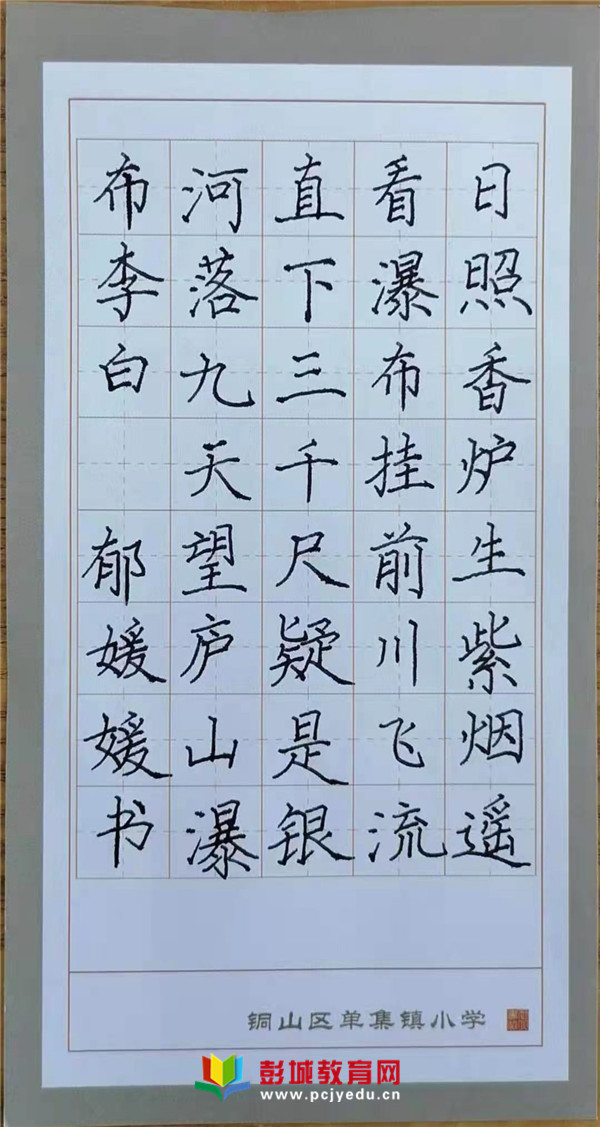 日照香炉生紫烟遥
看瀑布挂前川飞流
直下三千尺疑是银
河落九天望庐山瀑
布李白 郁媛媛书
铜山区单集镇小学
彭城教育网
www.pcjyedu.cn